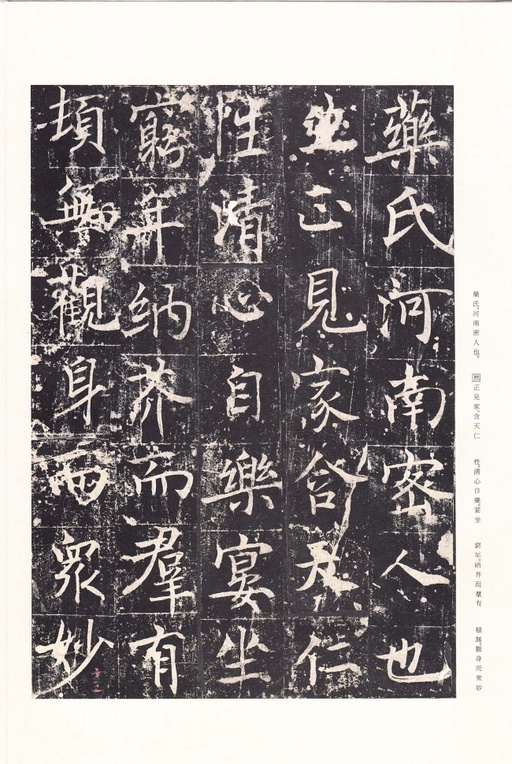 藥氏河南密人也
正見家含天仁
性清心自樂宴坐
窮年納芥而羣有
頓無觀身而衆妙
藥氏河南密人也。 正見家含天仁 性清心自樂宴坐 窮年納芥而羣有 頓無觀身而衆妙